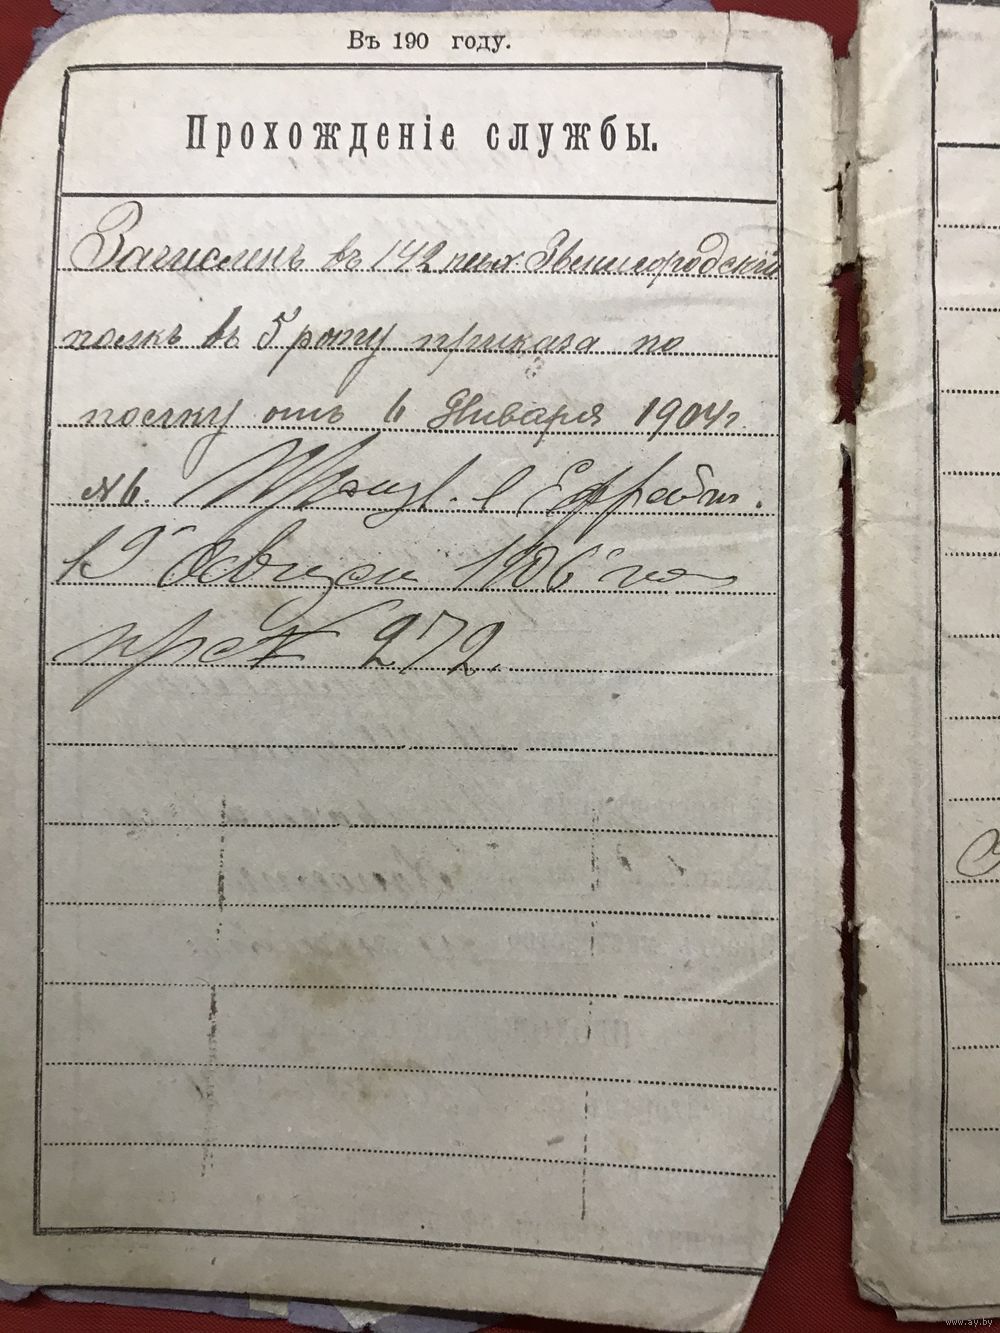 Въ 190 году.
Прохожденіе службы.
Зачисленъ въ 142 пѣх. Звенигородскій
полкъ въ 5 роту приказа по
полку отъ 6 Января 1904 г.
№ 6. Произв. в Ефрейт.
19 1906 го
272.
www.ay.by